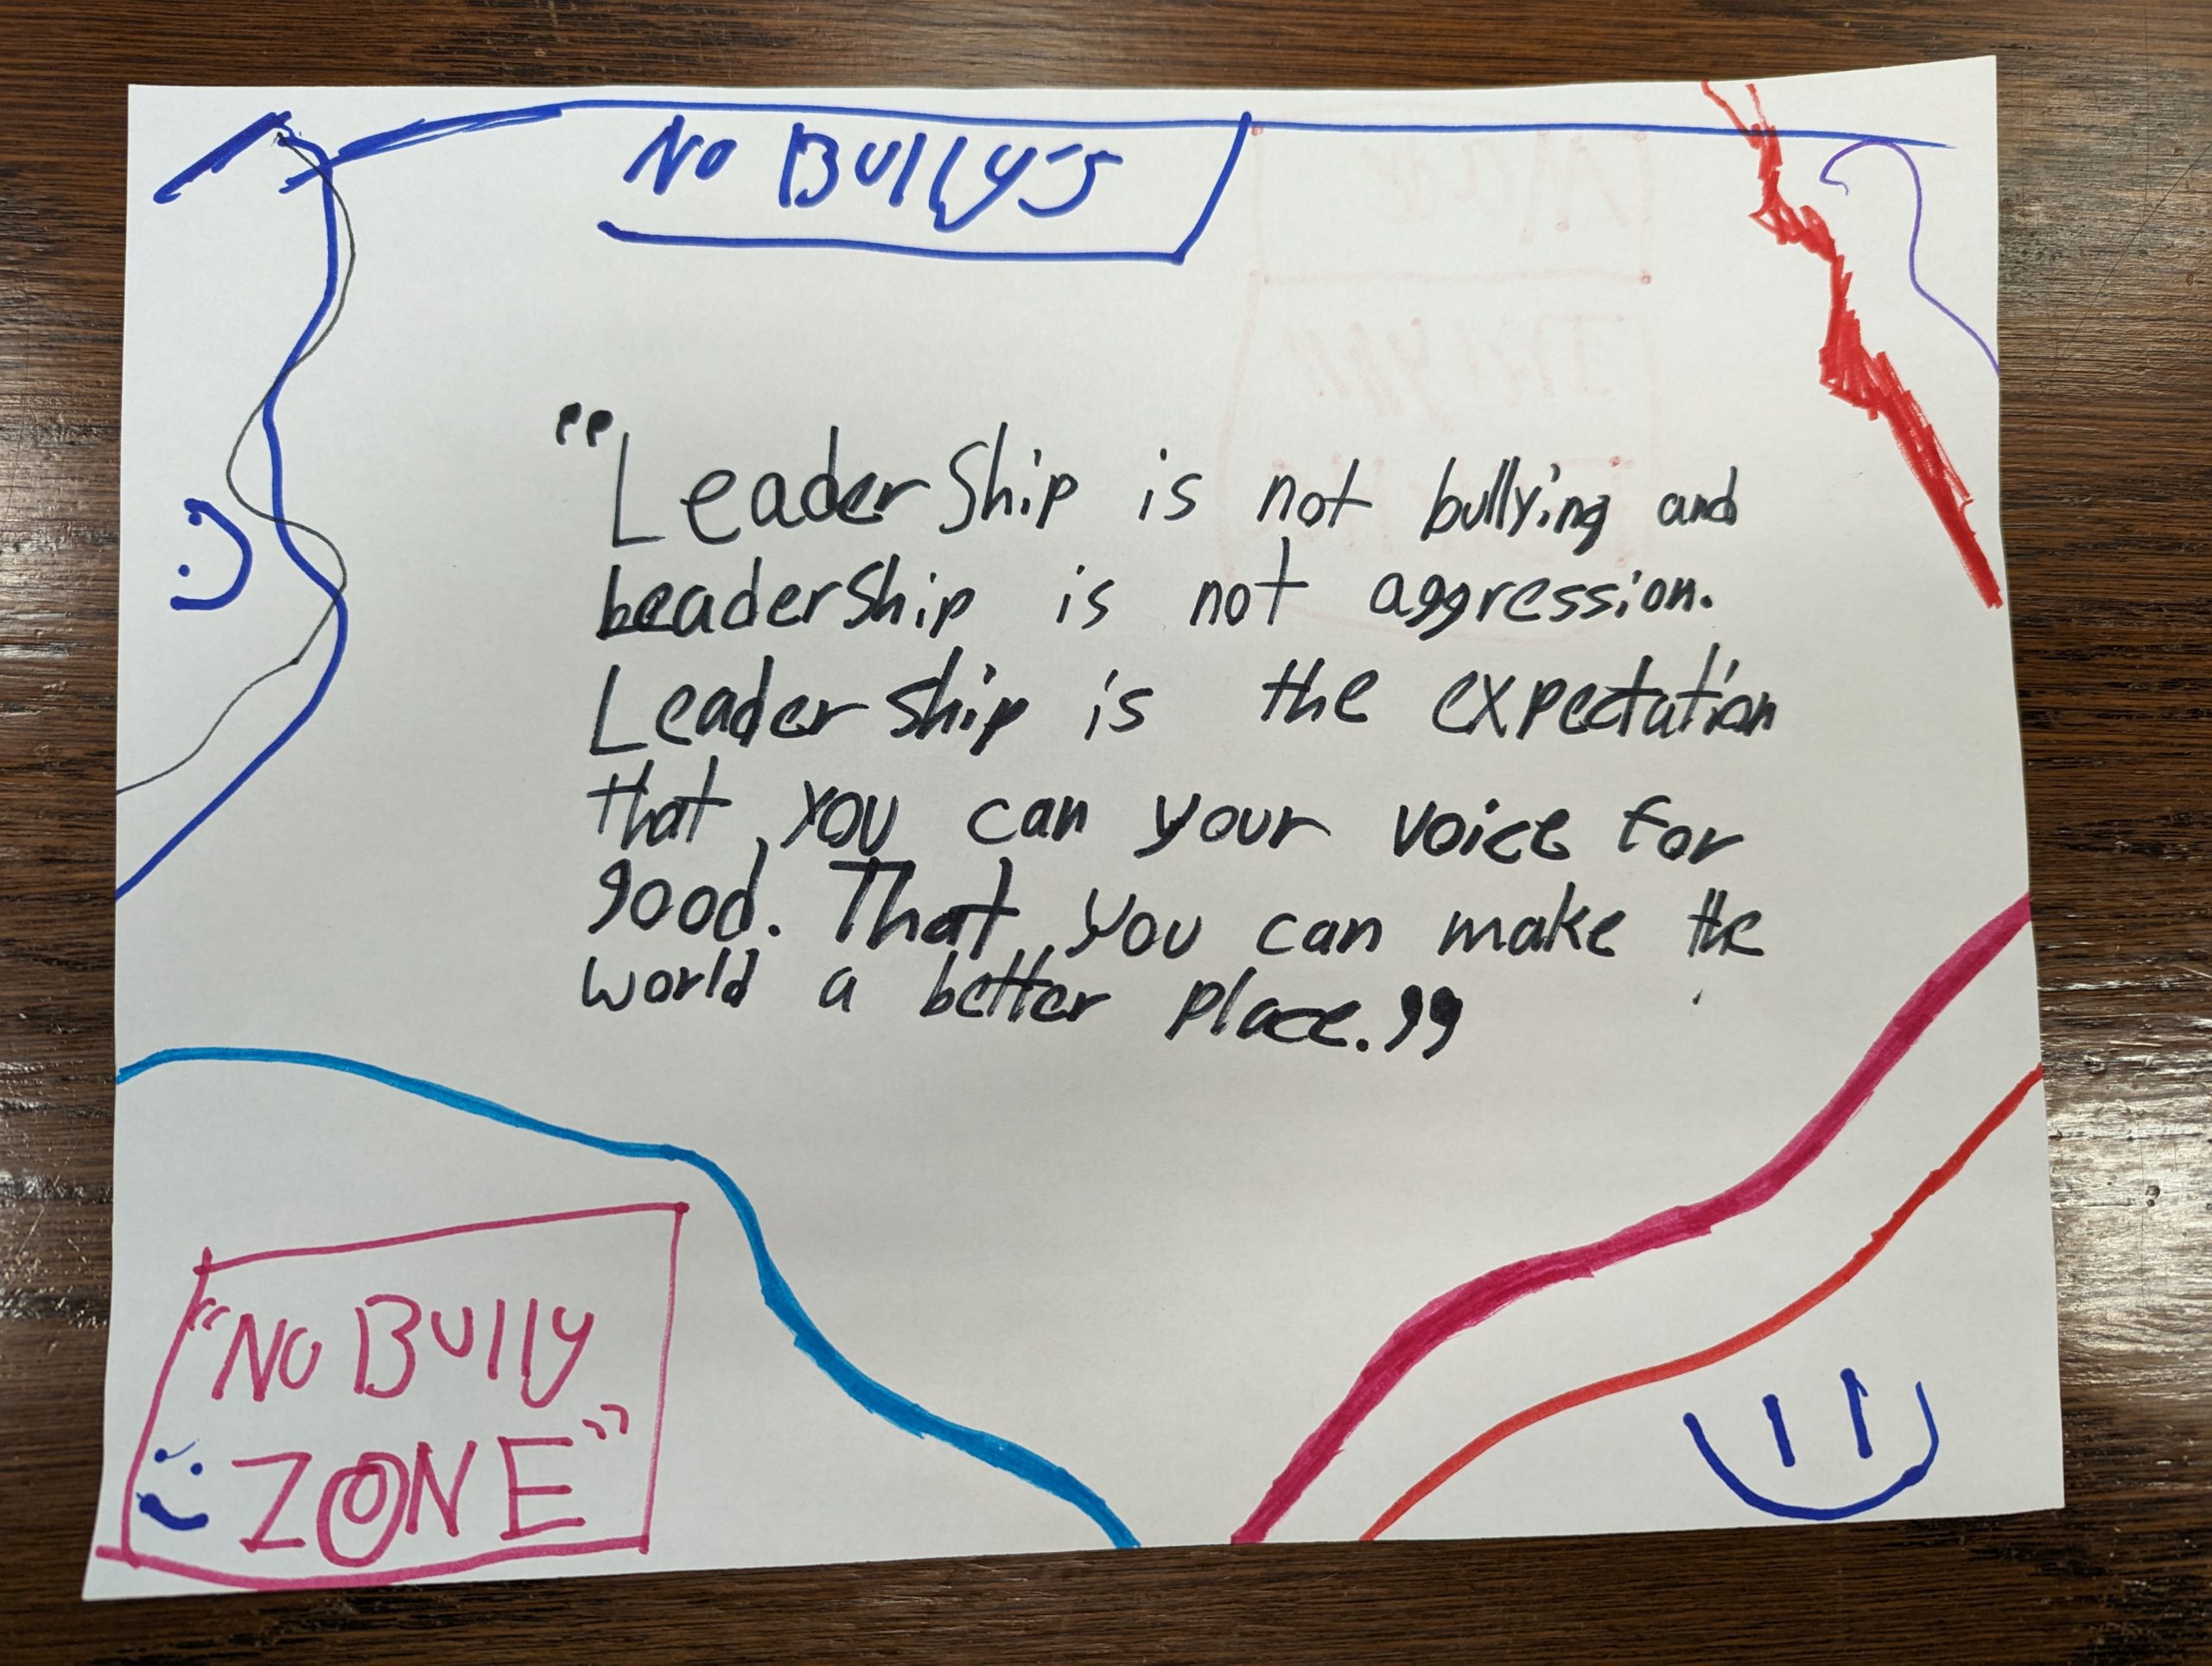 No Bullys
"Leadership is not bullying and
Leadership is not aggression.
Leadership is the expectation
that you can your voice for
good. That you can make the
world a better place."
"No Bully
ZONE"